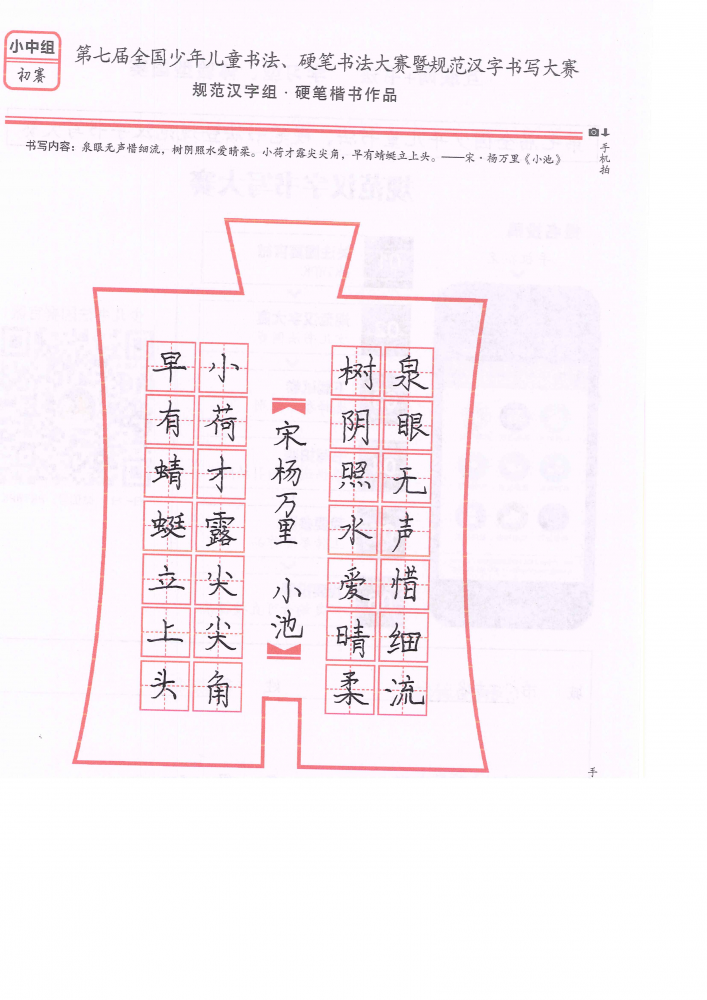 小中组
初赛
第七届全国少年儿童书法、硬笔书法大赛暨规范汉字书写大赛
规范汉字组·硬笔楷书作品
手机拍
书写内容：泉眼无声惜细流，树阴照水爱晴柔。小荷才露尖尖角，早有蜻蜓立上头。——宋·杨万里《小池》
泉眼无声惜细流
树阴照水爱晴柔
宋杨万里 小池
小荷才露尖尖角
早有蜻蜓立上头
手